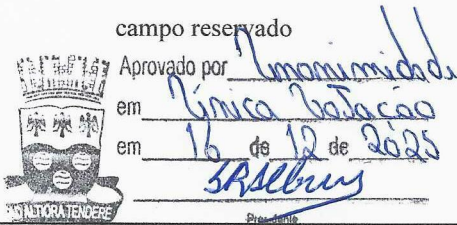 campo reservado
Aprovado por Unanimidade
em Única Votação
em 16 de 12 de 2025
Presidente
ALTIORA TENDERE